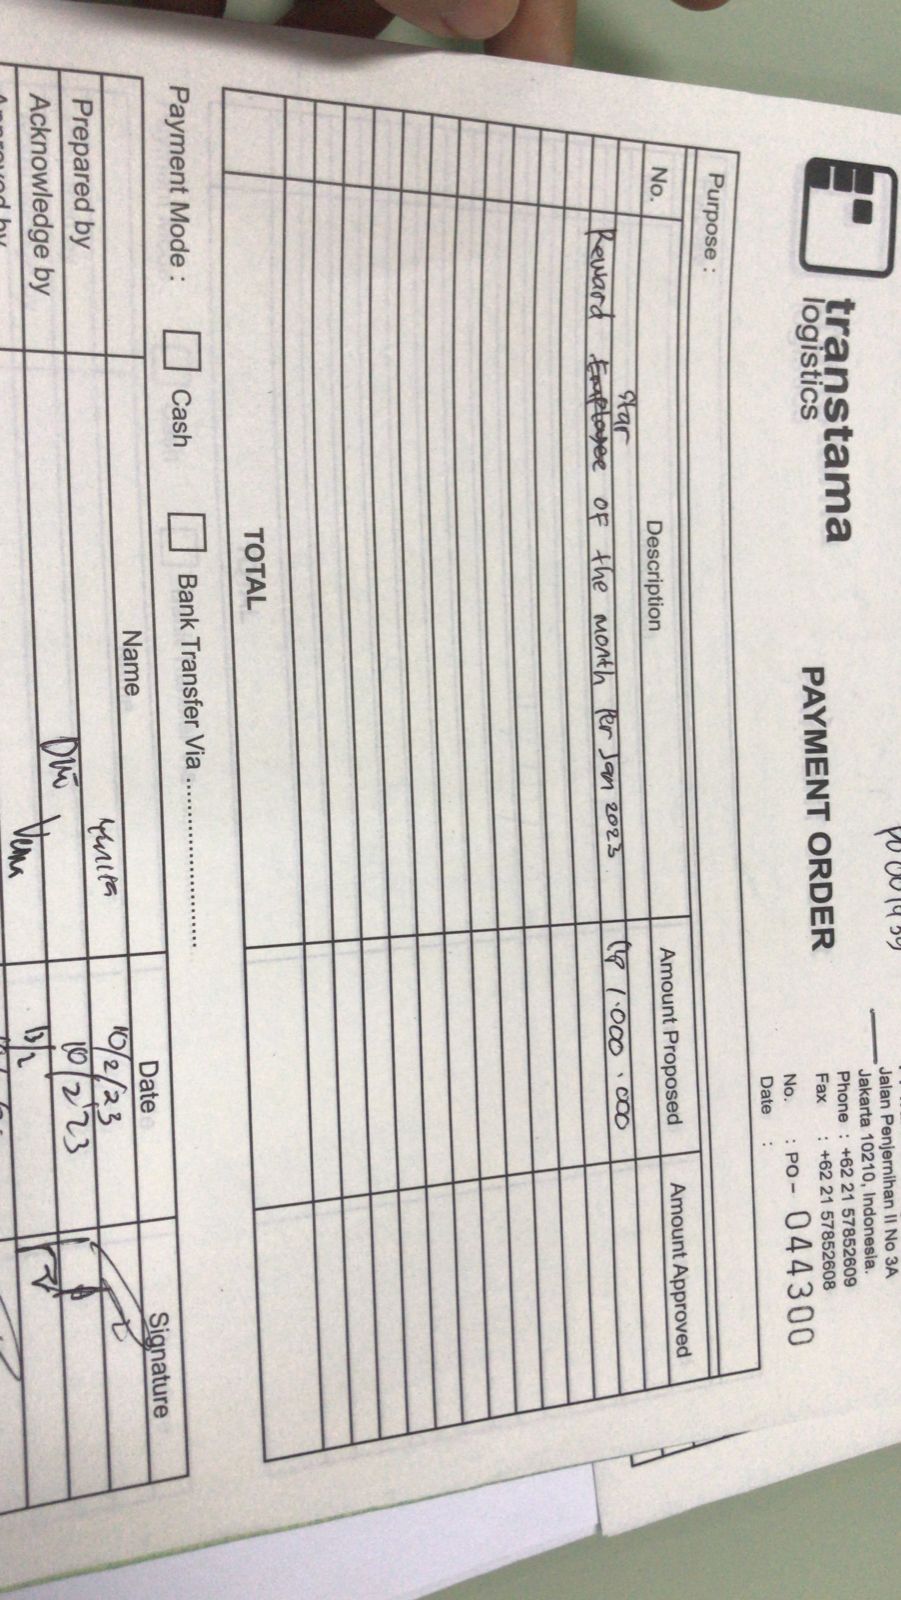 transtama
logistics
PAYMENT ORDER
Jalan Penjernihan II No 3A
Jakarta 10210, Indonesia.
Phone : +62 21 57852609
Fax : +62 21 57852608
No. : PO- 044300
Date :
Purpose :
No. Description Amount Proposed Amount Approved
star
Reward Employee OF the month Per Jan 2023 Rp 1.000.000
TOTAL
Payment Mode : Cash Bank Transfer Via ........................
Name Date Signature
Prepared by Yunita 10/2/23
Acknowledge by Dwi 10/2 23
Approved by 13/2